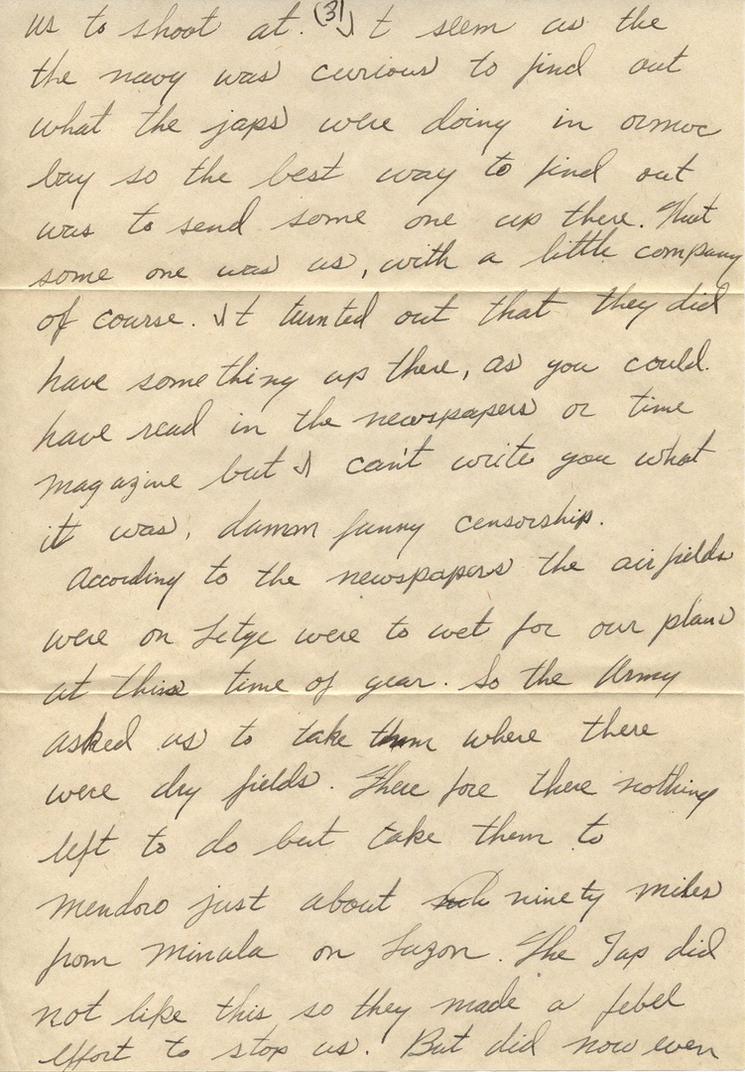 us to shoot at. (3) It seem as the
the navy was curious to find out
what the japs were doing in ormoc
bay so the best way to find out
was to send some one up there. That
some one was us, with a little company
of course. It turnted out that they did
have something up there, as you could
have read in the newspapers or time
magazine but I can't write you what
it was, damm funny censorship.
According to the newspapers the airfields
were on Letye were to wet for our plans
at this time of year. So the Army
asked us to take them where there
were dry fields. There fore there nothing
left to do but take them to
Mendoro just about ninety miles
from Minala on Luzon. The Jap did
not like this so they made a febel
effort to stop us. But did now even